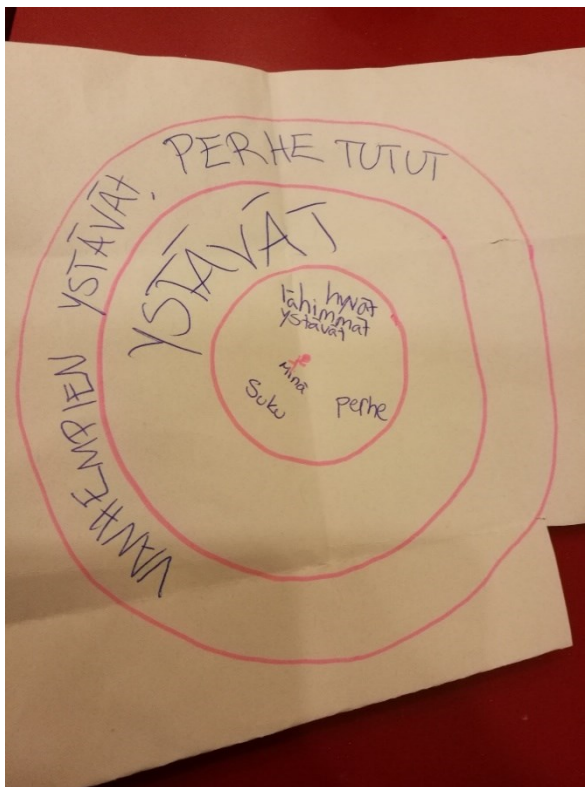 VANHEMPIEN YSTÄVÄT, PERHE TUTUT
YSTÄVÄT
hyvät
lähimmät
ystävät
Minä
Suku
perhe